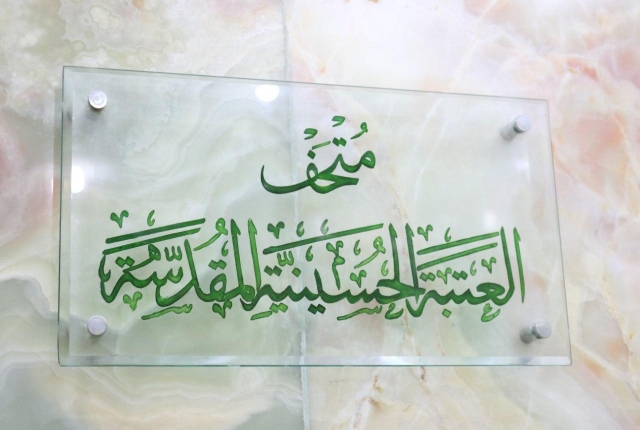 مُتْحَفُ
العتبة الحُسينيّة المُقدّسة